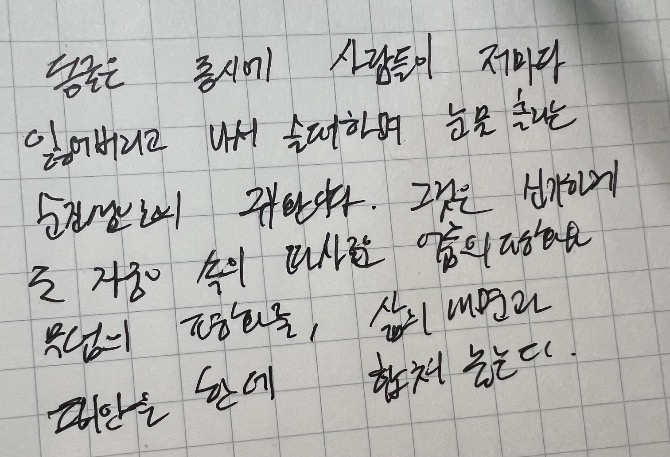 동굴은 동시에 사람들이 저마다
잃어버리고 나서 슬퍼하며 눈물 흘리는
순진성으로의 귀환이다. 그것은 신기하게
도 자궁 속의 따사로운 어둠의 평화요
무덤의 평화를, 삶의 내면과
피안을 한데 합쳐 놓는다.